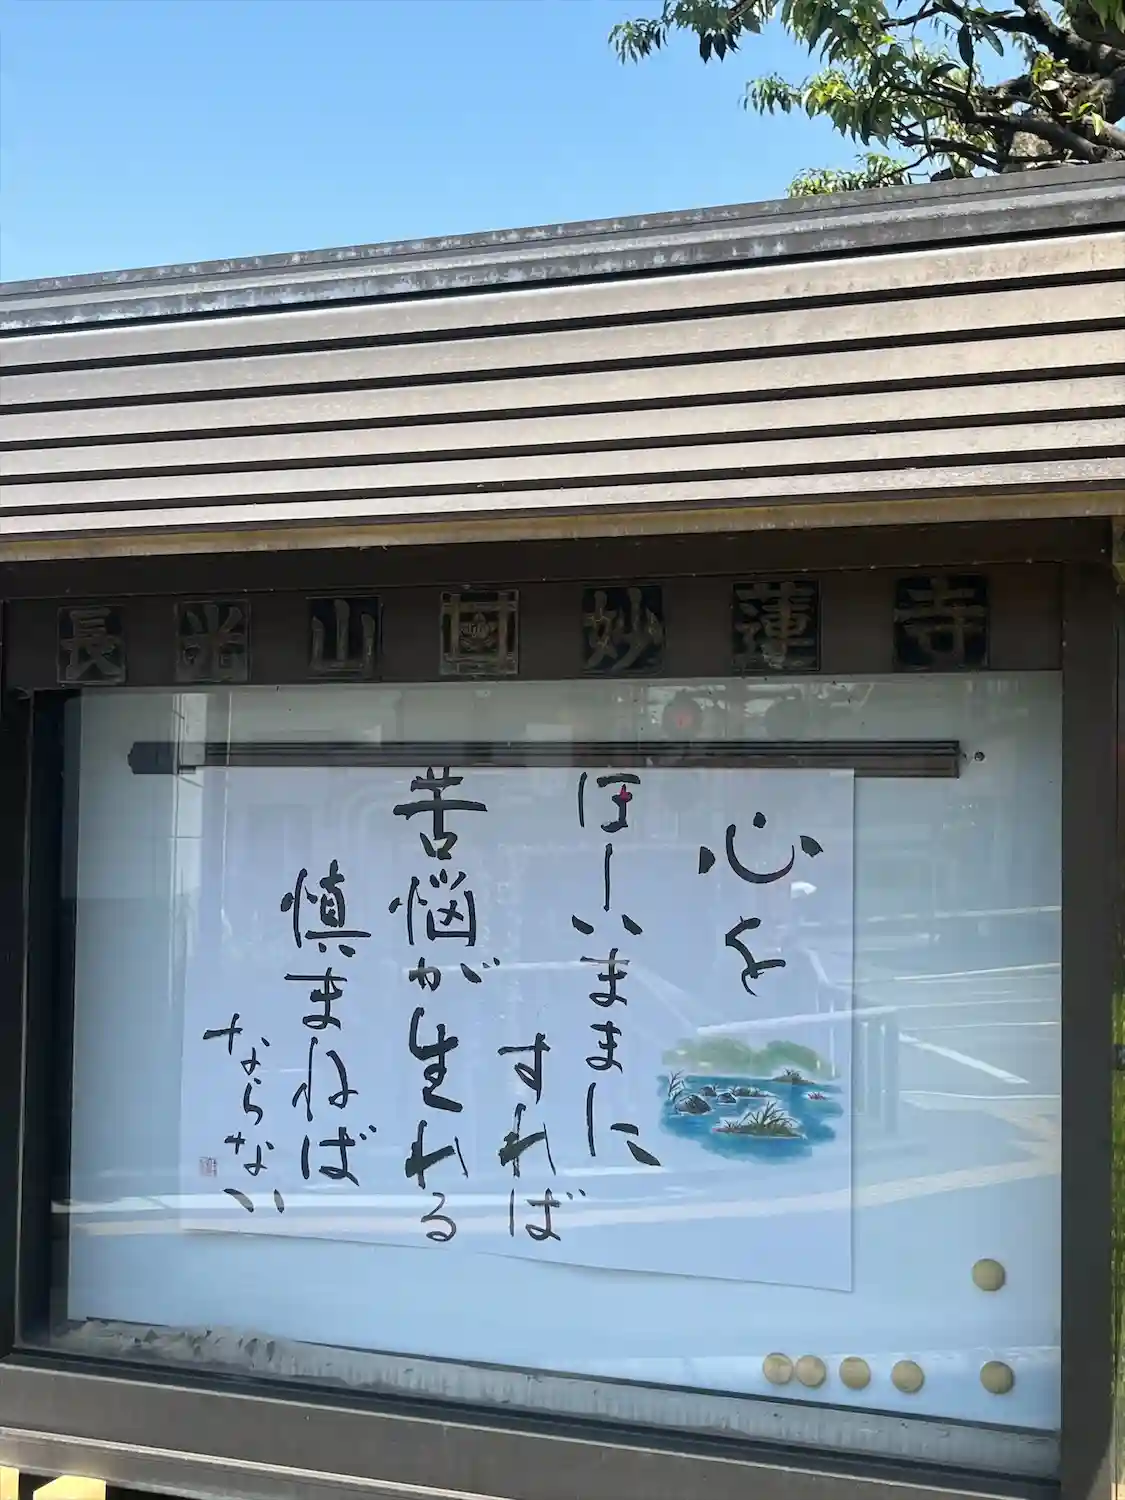 長光山 妙蓮寺
心を
ほしいままに
すれば
苦悩が生れる
慎まねば
ならない